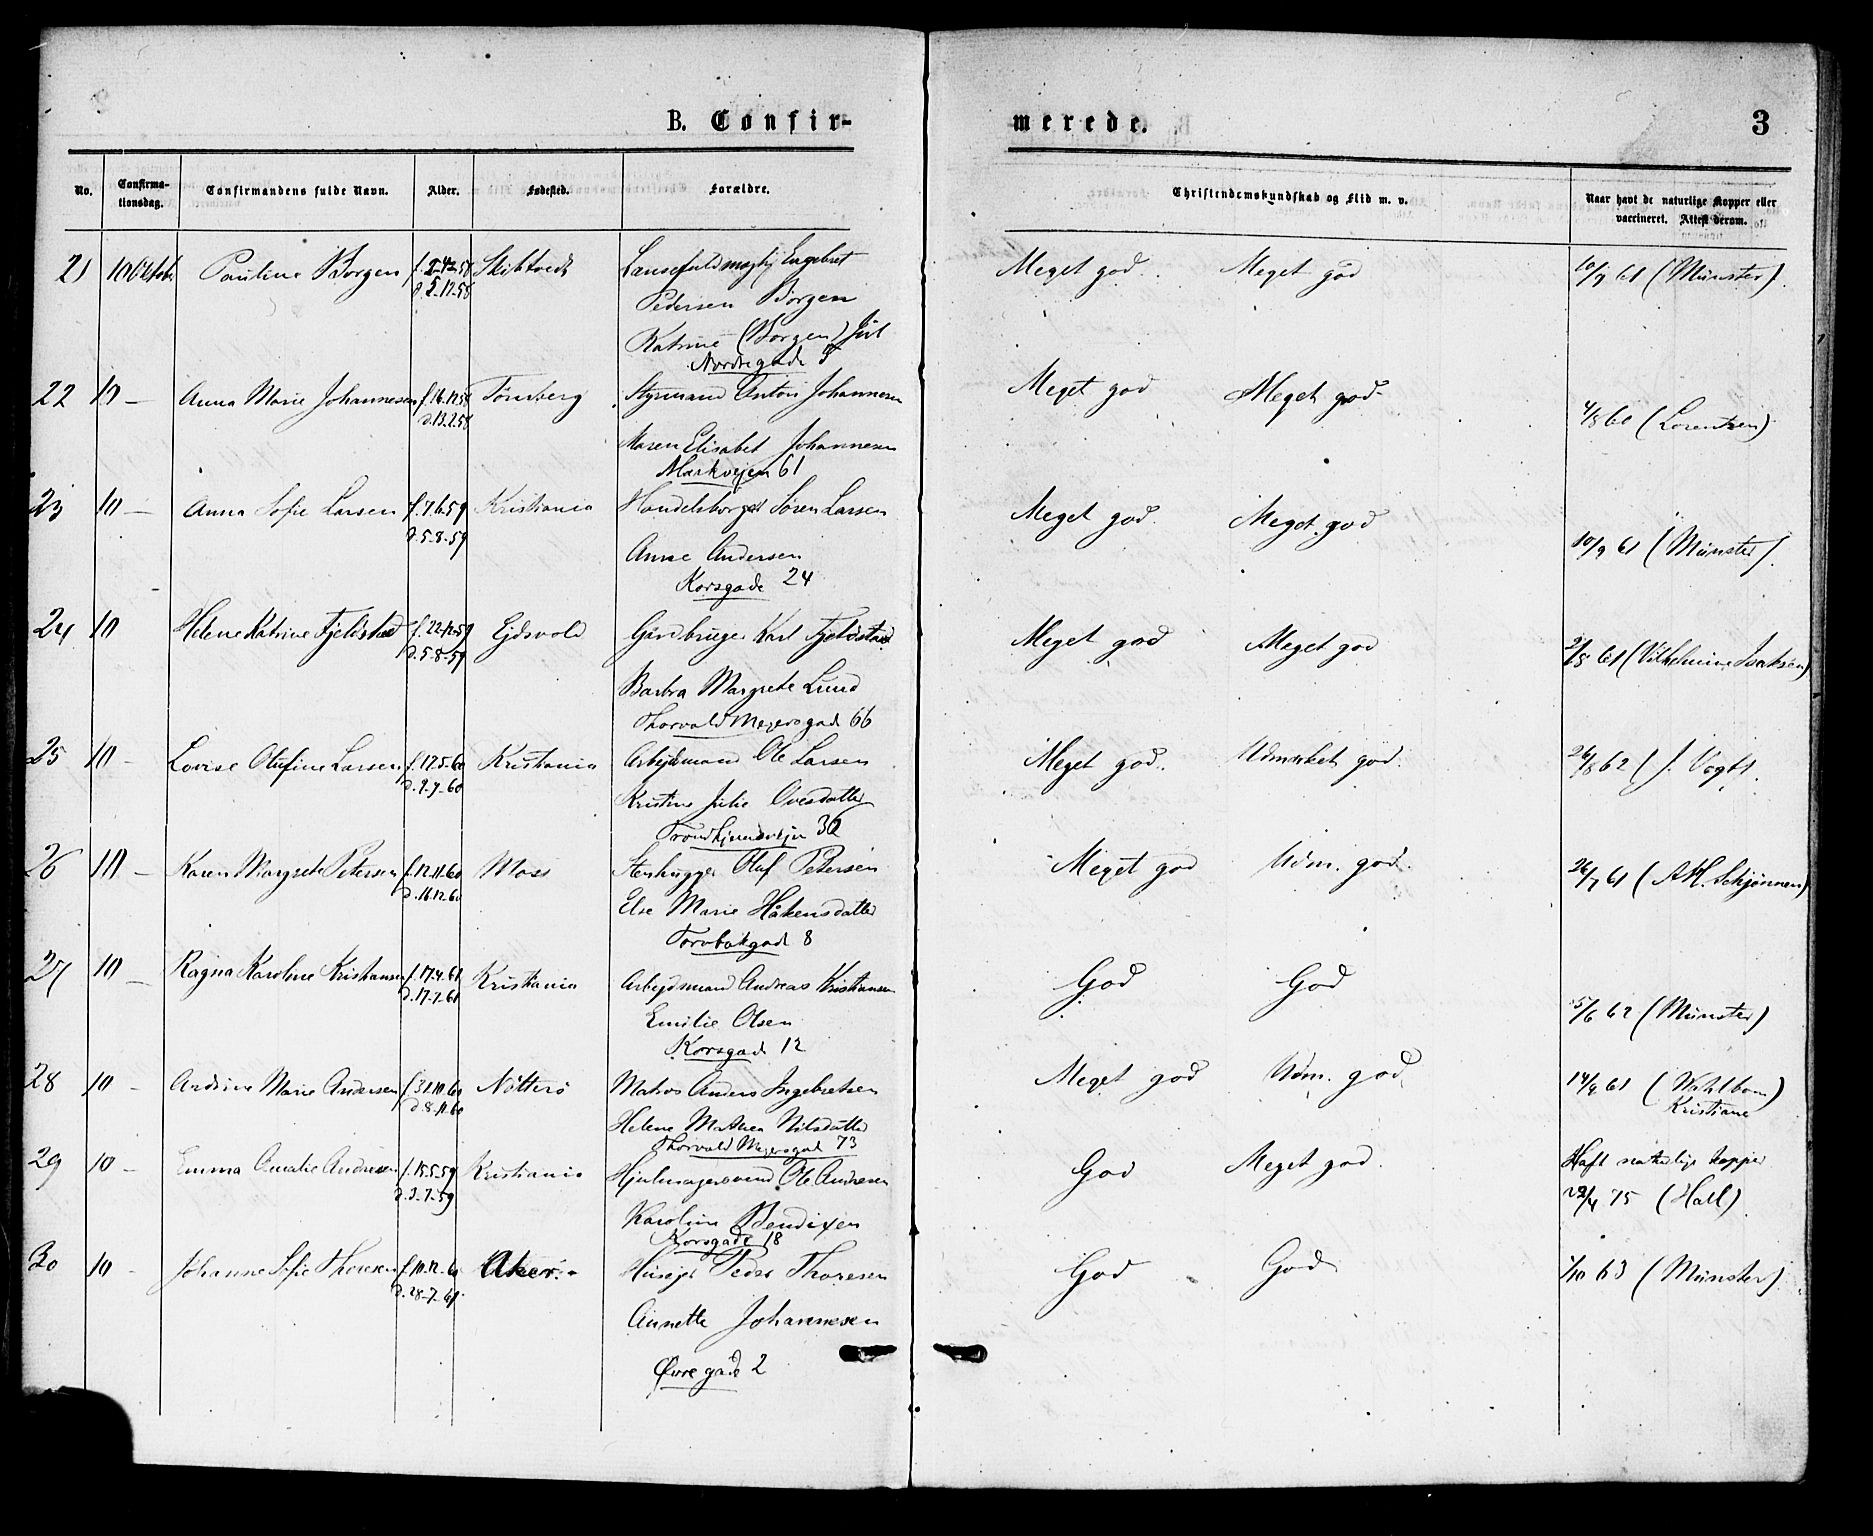 B. Confir-
merede.
3
No.
Confirma-
tionsdag.
Confirmandens fulde Navn.
Alder.
Fødested.
Forældre.
Christendomskundskab og Flid m. v.
Naar havt de naturlige Kopper eller
vaccineret. Attest derom.
21 10 Oktob Pauline Borgen Skibtvedt Engebret Meget god. Meget god 10/9 61 (Münster)
d. 5.12.58 Pedersen Borgen
Katrine (Borgen)
Nordregade 5
22 10 — Anna Marie Johannesen f. 16.12.58 Tønsberg Styrmand Anton Johannesen Meget god Meget god 4/8 60 (Lorentzen)
d. 13.2.58
Maren Elisabet Johannesen
Markvejen 61
23 10 — Anna Sofie Larsen f. 7.6.59 Kristiania Handelsborger Søren Larsen Meget god. Meget god 10/9 61 (Münster)
d. 5-8-59
Anne Andersen
Korsgade 24
24 10 Helene Katrine Fjeldstad f. 22.12.59 Ejdsvold Gårdbruger Karl Fjeldstad Meget god Meget god 2/8 61 (Vilhelmine Isaksen)
d. 5.8-59
Barbra Margrete Lund
Thorvald Meyersgad 66
25 10 — Lovise Olufine Larsen f. 12.5.60 Kristiania Arbejdsmand Ole Larsen Meget god. Udmærket god. 26/8 62 (J. Vogt)
d. 9.7.60
Kristine Julie Ovesdatter
Trondhjemsvejen 36
26 10 — Karen Margrete Petersen f. 12.11.60 Moss Stenhugger Oluf Petersen Meget god Udm. god. 26/7 61 (A.H. Schjønnen)
d. 16.12.60
Else Marie Håkensdatter
Torvbakgad 8
27 10 — Ragna Karoline Kristiansen f. 17.4.61 Kristiania Arbejdsmand Andreas Kristiansen God God 5/6 62 (Münster)
d. 17.7.61
Emilie Olsen
Korsgad 12
28 10 — Andrine Marie Andersen f. 31.10.60 Nøtterø Matros Anders Ingebretsen Meget god Udm. god. 14/9 61 (Wahlbom
d. 8.11.60 Kristiane)
Helene Mathea Nilsdatter
Thorvald Meyersgad 73
29 10 — Emma Amalie Andresen f. 15.5.59 Kristiania Hjulmagersvend Ole Andresen God Meget god. Haft naturlige kopper
d. 3.7.59 22/4 75 (Hall)
Karoline Bendixen
Korsgade 18
30 10 — Johanne Sofie Thoresen f. 10.12.60 Aker. Husejer Peder Thoresen God God. 1/10 63 (Münster)
d. 28-7-61
Annette Johannesen
Øvregade 2